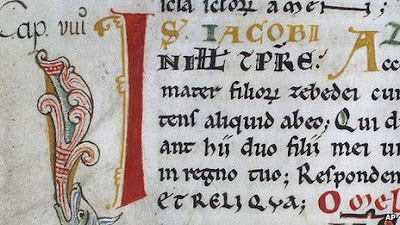 Cap. viii
S. IACOBI
IN ILL TPRE: Acc
mater filioꝝ zebedei cu
tens aliquid abeo; Qui d
ant hii duo filii mei u
in regno tuo; Responden
ET RELIQVA; Omel
AP